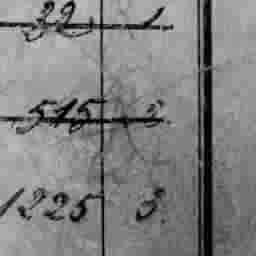 32 1
515 2.
1225 3.